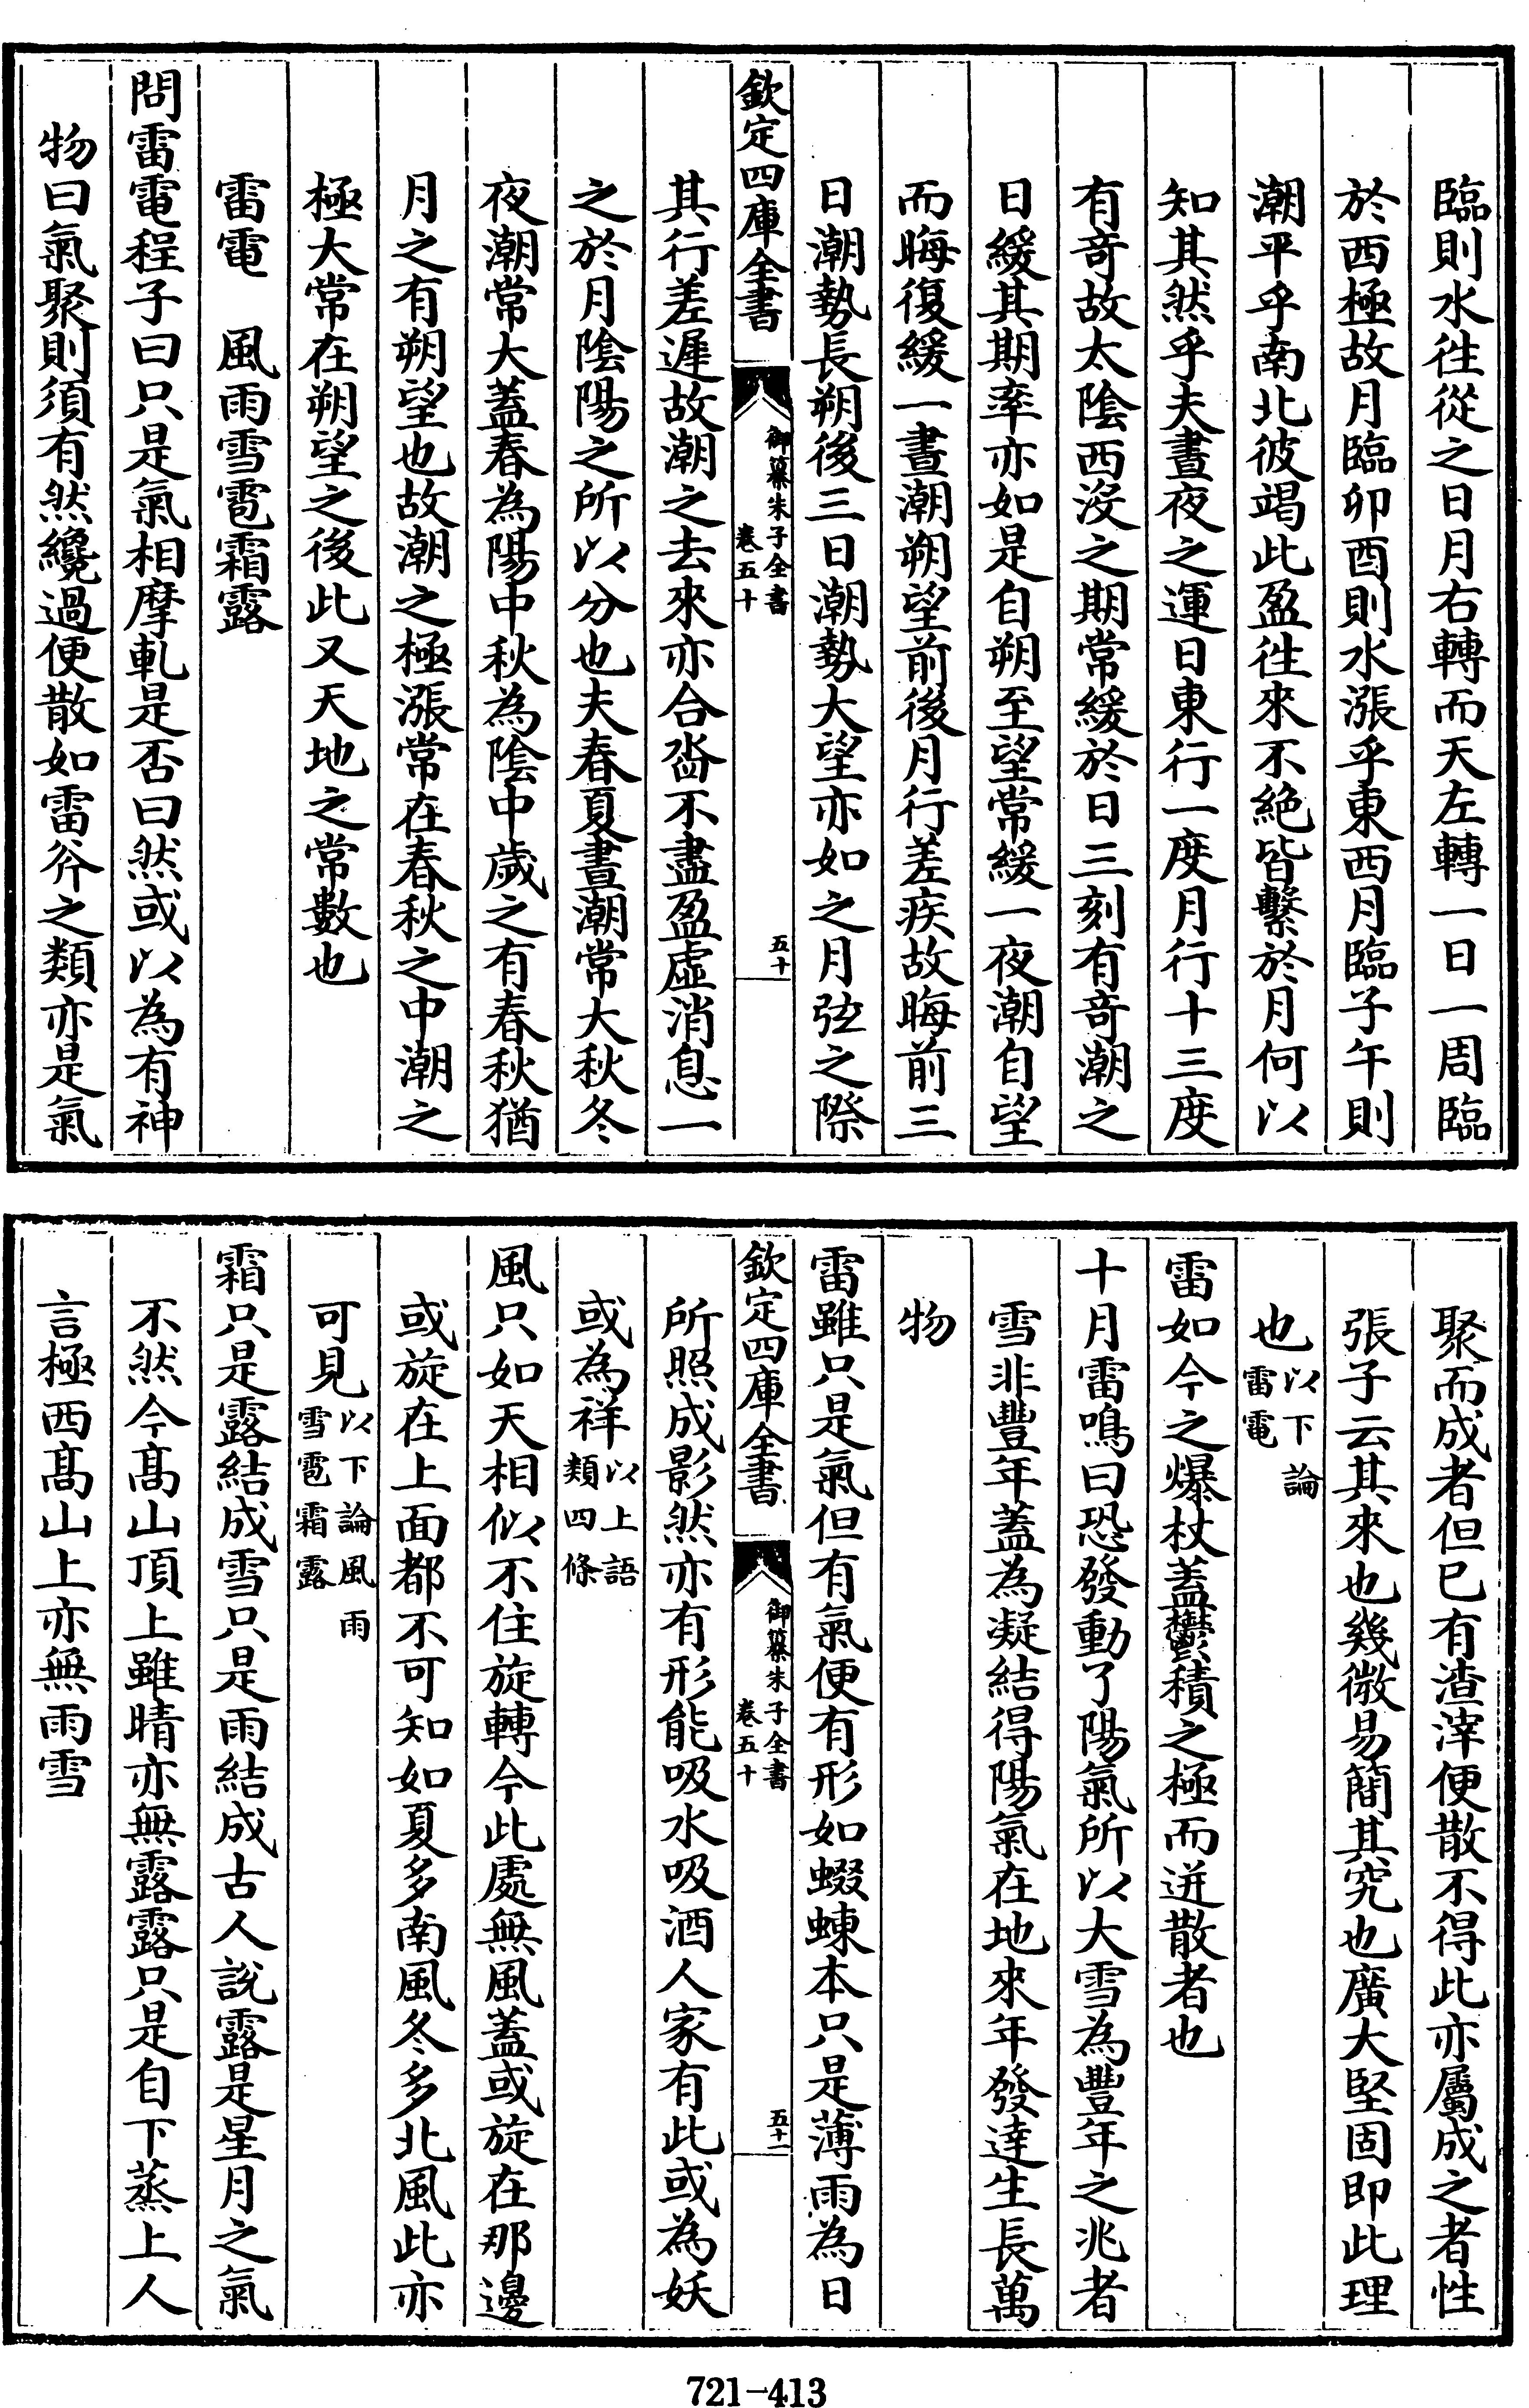 臨則水徃從之日月右轉而天左轉一日一周臨
於西極故月臨卯酉則水漲乎東西月臨子午則
潮平乎南北彼竭此盈徃來不絶皆繫於月何以
知其然乎夫晝夜之運日東行一度月行十三度
有竒故太陰西没之期常緩於日三刻有竒潮之
日緩其期率亦如是自朔至望常緩一夜潮自望
而晦復緩一晝潮朔望前後月行差疾故晦前三
日潮勢長朔後三日潮勢大望亦如之月弦之際
欽定四庫全書 御纂朱子全書 卷五十 五十
其行差遲故潮之去來亦合沓不盡盈虛消息一
之於月陰陽之所以分也夫春夏晝潮常大秋冬
夜潮常大蓋春為陽中秋為陰中歲之有春秋猶
月之有朔望也故潮之極漲常在春秋之中潮之
極大常在朔望之後此又天地之常數也
雷電 風雨雪雹霜露
問雷電程子曰只是氣相摩軋是否曰然或以為有神
物曰氣聚則須有然纔過便散如雷斧之類亦是氣
聚而成者但已有渣滓便散不得此亦屬成之者性
張子云其來也幾微易簡其究也廣大堅固即此理
也以下論雷電
雷如今之爆杖蓋鬱積之極而迸散者也
十月雷鳴曰恐發動了陽氣所以大雪為豐年之兆者
雪非豐年蓋為凝結得陽氣在地來年發達生長萬
物
雷雖只是氣但有氣便有形如蝃蝀本只是薄雨為日
欽定四庫全書 御纂朱子全書 卷五十 五十一
所照成影然亦有形能吸水吸酒人家有此或為妖
或為祥以上語類四條
風只如天相似不住旋轉今此處無風蓋或旋在那邊
或旋在上面都不可知如夏多南風冬多北風此亦
可見以下論風雨雪雹霜露
霜只是露結成雪只是雨結成古人說露是星月之氣
不然今髙山頂上雖晴亦無露露只是自下蒸上人
言極西髙山上亦無雨雪
721-413